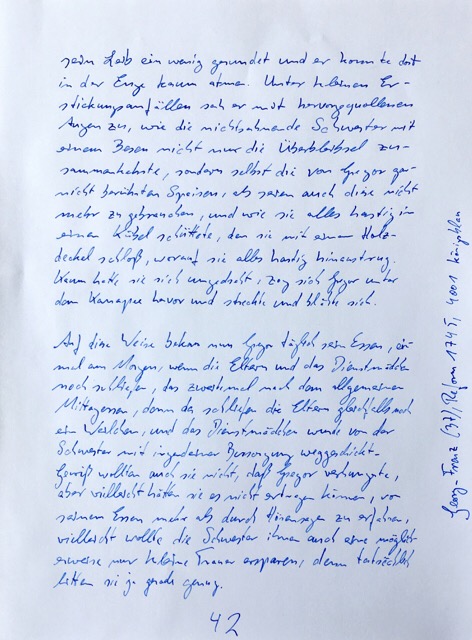 sein Leib ein wenig gerundet und er konnte dort
in der Enge kaum atmen. Unter kleinen Er-
stickungsanfällen sah er mit hervorgequollenen
Augen zu, wie die nichtsahnende Schwester mit
einem Besen nicht nur die Überbleibsel zu-
sammenkehrte, sondern selbst die von Gregor gar
nicht berührten Speisen, als seien auch diese nicht
mehr zu gebrauchen, und wie sie alles hastig in
einen Kübel schüttete, den sie mit einem Holz-
deckel schloß, worauf sie alles hastig hinaustrug.
Kaum hatte sie sich umgedreht, zog sich Gregor unter
dem Kanapee hervor und streckte und blähte sich.
Auf diese Weise bekam nun Gregor täglich sein Essen, ein-
mal am Morgen, wenn die Eltern und das Dienstmädchen
noch schliefen, das zweitemal nach dem allgemeinen
Mittagessen, denn da schliefen die Eltern gleichfalls noch
ein Weilchen, und das Dienstmädchen wurde von der
Schwester mit irgendeiner Besorgung weggeschickt.
Gewiß wollten auch sie nicht, daß Gregor verhungere,
aber vielleicht hätten sie es nicht ertragen können, von
seinem Essen mehr als durch Hörensagen zu erfahren,
vielleicht wollte die Schwester ihnen auch eine möglich-
erweise nur kleine Trauer ersparen, denn tatsächlich
litten sie ja gerade genug.
42
Georg-Franz (37)/Reform 1745, 4001 königsblau